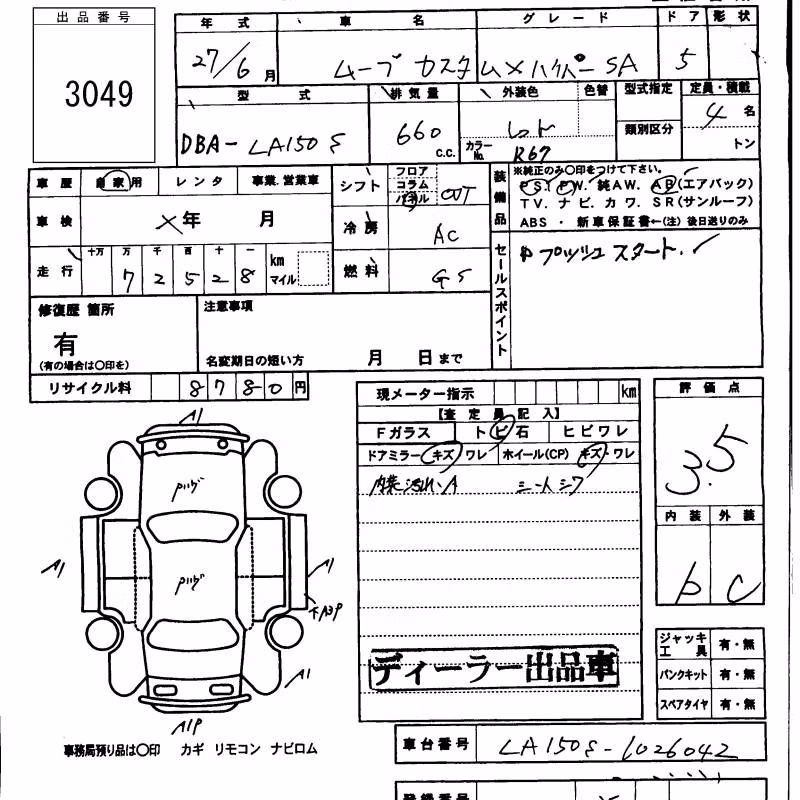 出品番号
3049
年式 車名 グレード ドア 形状
27/6月 ムーブ カスタム Xハイパー SA 5
型式 排気量 外装色 色替 型式指定 定員・積載
DBA- LA150S 660 c.c. レッド 類別区分 4名
カラーNo. R67 トン
車歴 自家用 レンタ 事業.営業車
シフト フロア コラム パネル CVT
装備品 ※純正のみ〇印をつけて下さい。
PS. PW. 純AW. AB(エアバック)
TV. ナビ. カワ. SR(サンルーフ)
ABS ・ 新車保証書←(注) 後日送りのみ
車検 ×年 月
冷房 AC
走行 十万 万 千 百 十 一 km マイル
7 2 5 2 8
燃料 GS
セールスポイント プッシュスタート.
修復歴 箇所
有
(有の場合は〇印を)
注意事項
名変期日の短い方 月 日まで
リサイクル料 8780円
現メーター指示 km
【査定員記入】
Fガラス トビ石 ヒビワレ
ドアミラー キズ・ワレ ホイール(CP) キズ・ワレ
内装汚れ・A シートシワ
評価点
3.5
内装 外装
b C
A1
A1
A1
A1
A1P
ディーラー出品車
ジャッキ工具 有・無
パンクキット 有・無
スペアタイヤ 有・無
事務局預り品は〇印 カギ リモコン ナビロム
車台番号 LA150S-1026042
登録番号